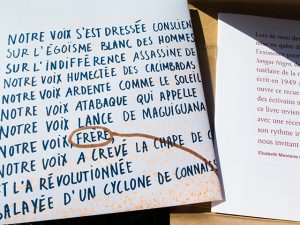 NOTRE VOIX S'EST DRESSÉE CONSCIEN
SUR L'ÉGOÏSME BLANC DES HOMMES
SUR L'INDIFFÉRENCE ASSASSINE DE
NOTRE VOIX HUMECTÉE DES CACIMBADAS
NOTRE VOIX ARDENTE COMME LE SOLEIL
NOTRE VOIX ATABAQUE QUI APPELLE
NOTRE VOIX LANCE DE MAGUIGUANA
NOTRE VOIX FRÈRE
NOTRE VOIX A CREVÉ LA CHAPE DE C
ET L'A RÉVOLUTIONNÉE
BALAYÉE D'UN CYCLONE DE CONNAISS
Lors de mon
en quête d
l'existen
Sangue Negro,
tutélaire de la
en 1949
ce recueil
des écrivains
un livre
ce livre revien
avec une reco
son rythme i
nous invitant
Elisabeth Monteiro